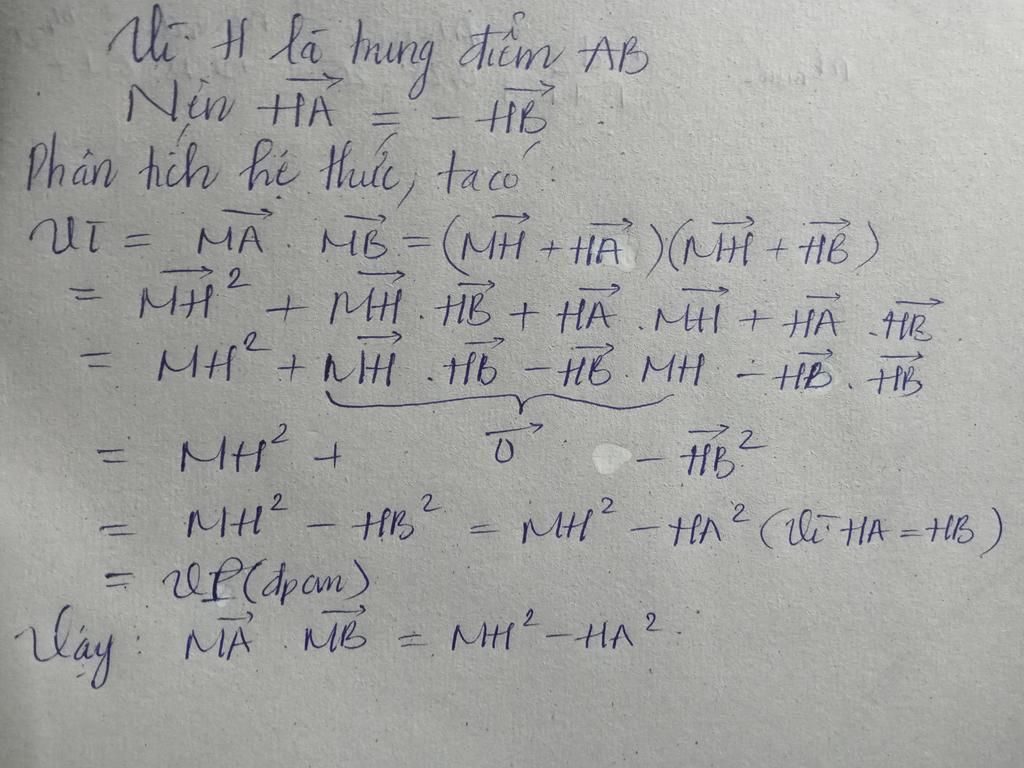 Vì H là trung điểm AB
Nên $\overrightarrow{HA} = -\overrightarrow{HB}$
Phân tích hệ thức, ta có:
VT = $\overrightarrow{MA} . \overrightarrow{MB} = (\overrightarrow{MH} + \overrightarrow{HA})(\overrightarrow{MH} + \overrightarrow{HB})$
$= \overrightarrow{MH}^2 + \overrightarrow{MH} . \overrightarrow{HB} + \overrightarrow{HA} . \overrightarrow{MH} + \overrightarrow{HA} . \overrightarrow{HB}$
$= MH^2 + \overrightarrow{MH} . \overrightarrow{HB} - \overrightarrow{HB} . MH - \overrightarrow{HB} . \overrightarrow{HB}$
$= MH^2 + \overrightarrow{0} - \overrightarrow{HB}^2$
$= MH^2 - HB^2 = MH^2 - HA^2$ (Vì HA = HB)
= VP (đpcm)
Vậy: $\overrightarrow{MA} . \overrightarrow{MB} = MH^2 - HA^2$.